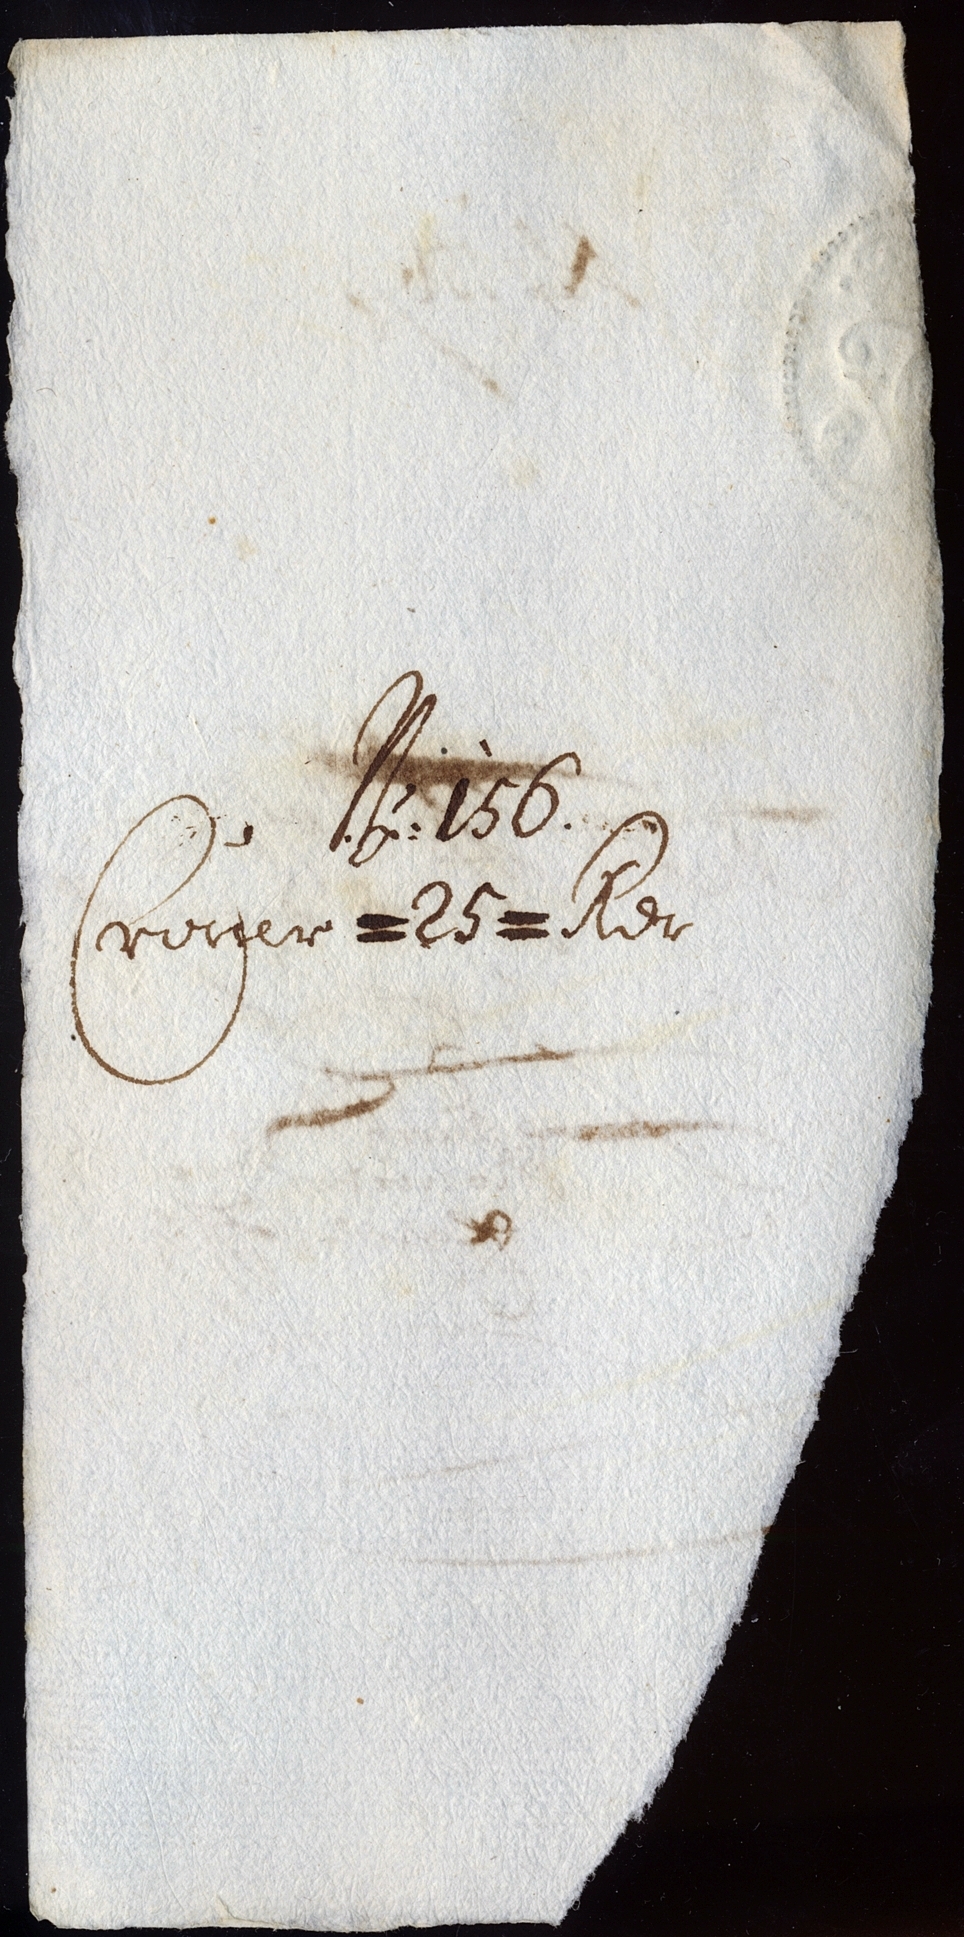 No: 156.
Croner = 25 = Rdr